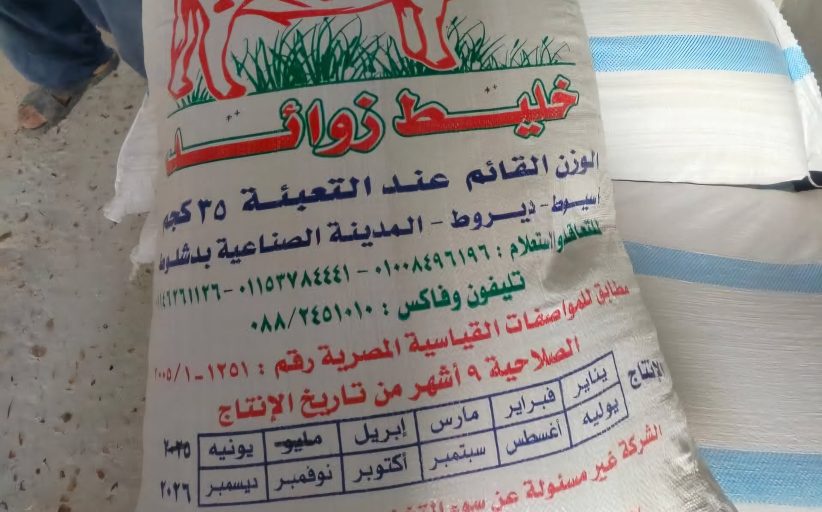 خليط زوائد
الوزن القائم عند التعبئة ٣٥ كجم
أسيوط - ديروط - المدينة الصناعية بدشلوط
للتعاقد والاستعلام : ٠١٠٠٨٤٩٦١٩٦ - ٠١١٥٣٧٨٤٤٤١ -
تليفون وفاكس : ٠٨٨/٢٤٥١٠١٠
مطابق للمواصفات القياسية المصرية رقم : ١٢٥١-١/٢٠٠٥
الصلاحية ٩ أشهر من تاريخ الإنتاج
الإنتاج يناير فبراير مارس إبريل مايو يونيه ٢٠٢٥
يوليه أغسطس سبتمبر أكتوبر نوفمبر ديسمبر ٢٠٢٦
الشركة غير مسئولة عن سوء